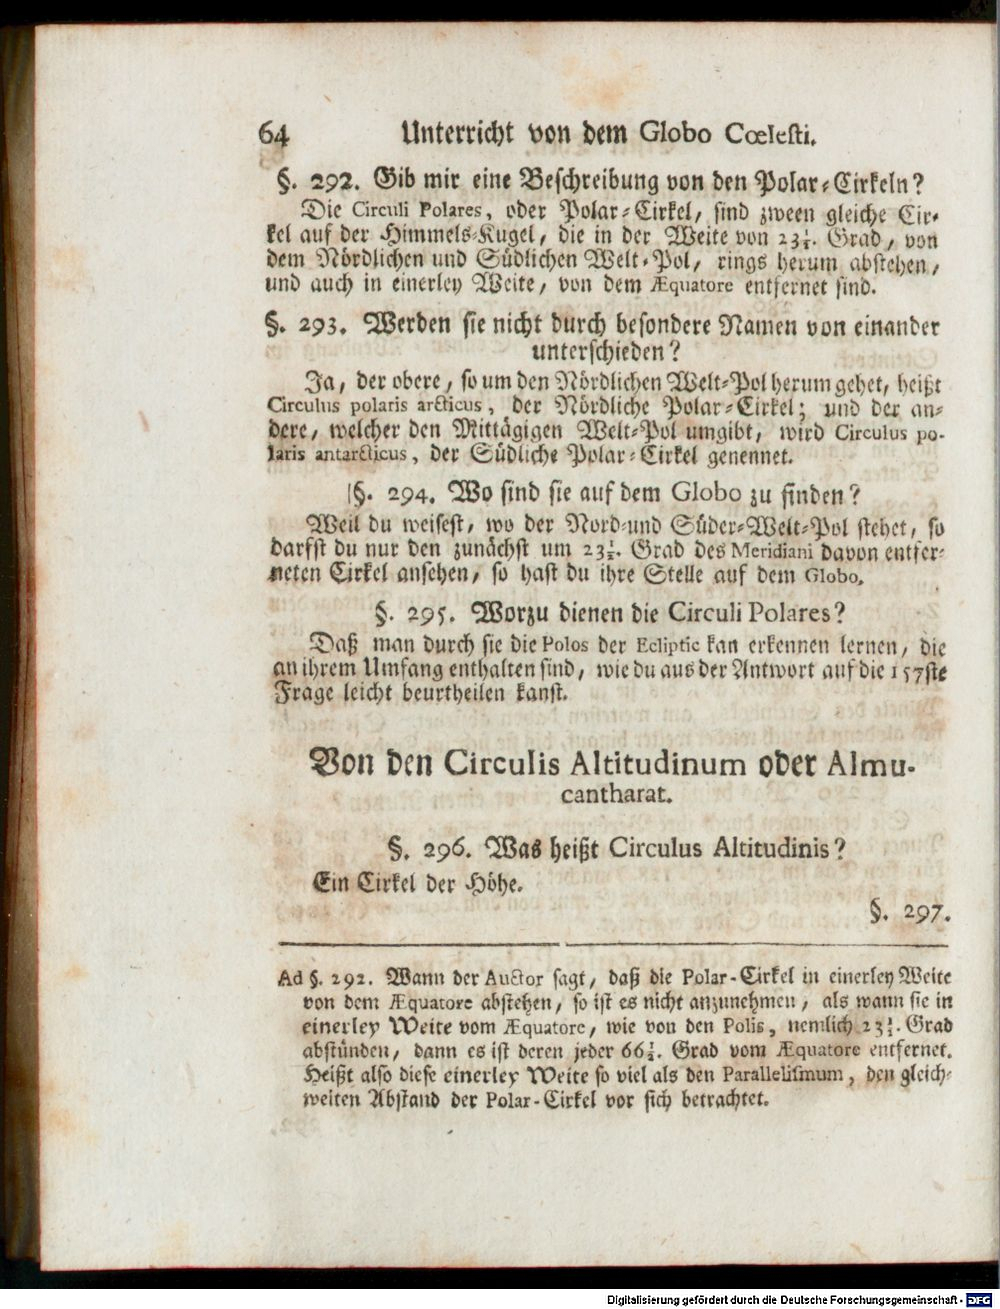 64 Unterricht von dem Globo Cœlesti.
§. 292. Gib mir eine Beschreibung von den Polar-Cirkeln?
Die Circuli Polares, oder Polar-Cirkel, sind zween gleiche Cir-
kel auf der Himmels-Kugel, die in der Weite von 23½. Grad, von
dem Nördlichen und Südlichen Welt-Pol, rings herum abstehen,
und auch in einerley Weite, von dem Æquatore entfernet sind.
§. 293. Werden sie nicht durch besondere Namen von einander
unterschieden?
Ja, der obere, so um den Nördlichen Welt-Pol herum gehet, heißt
Circulus polaris arcticus, der Nördliche Polar-Cirkel; und der an-
dere, welcher den Mittägigen Welt-Pol umgibt, wird Circulus po-
laris antarcticus, der Südliche Polar-Cirkel genennet.
§. 294. Wo sind sie auf dem Globo zu finden?
Weil du weisest, wo der Nord-und Süder-Welt-Pol stehet, so
darfst du nur den zunächst um 23½. Grad des Meridiani davon entfer-
neten Cirkel ansehen, so hast du ihre Stelle auf dem Globo.
§. 295. Worzu dienen die Circuli Polares?
Daß man durch sie die Polos der Ecliptic kan erkennen lernen, die
an ihrem Umfang enthalten sind, wie du aus der Antwort auf die 157ste
Frage leicht beurtheilen kanst.
Von den Circulis Altitudinum oder Almu-
cantharat.
§. 296. Was heißt Circulus Altitudinis?
Ein Cirkel der Höhe.
§. 297.
Ad §. 292. Wann der Auctor sagt, daß die Polar-Cirkel in einerley Weite
von dem Æquatore abstehen, so ist es nicht anzunehmen, als wann sie in
einerley Weite vom Æquatore, wie von den Polis, nemlich 23½. Grad
abstünden, dann es ist deren jeder 66½. Grad vom Æquatore entfernet.
Heißt also diese einerley Weite so viel als den Parallelismum, den gleich-
weiten Abstand der Polar-Cirkel vor sich betrachtet.
Digitalisierung gefördert durch die Deutsche Forschungsgemeinschaft - DFG